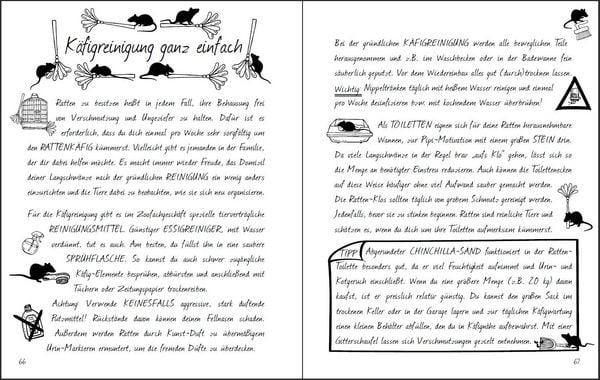 Käfigreinigung ganz einfach
Ratten zu besitzen heißt in jedem Fall, ihre Behausung frei
von Verschmutzung und Ungeziefer zu halten. Dafür ist es
erforderlich, dass du dich einmal pro Woche sehr sorgfältig um
den RATTENKÄFIG kümmerst. Vielleicht gibt es jemanden in der Familie,
der dir dabei helfen möchte. Es macht immer wieder Freude, das Domizil
deiner Langschwänze nach der gründlichen REINIGUNG ein wenig anders
einzurichten und die Tiere dabei zu beobachten, wie sie sich neu organisieren.
Für die Käfigreinigung gibt es im Zoofachgeschäft spezielle tierverträgliche
REINIGUNGSMITTEL. Günstiger ESSIGREINIGER, mit Wasser
verdünnt, tut es auch. Am besten, du füllst ihn in eine saubere
SPRÜHFLASCHE. So kannst du auch schwer zugängliche
Käfig-Elemente besprühen, abbürsten und anschließend mit
Tüchern oder Zeitungspapier trockenreiben.
Achtung: Verwende KEINESFALLS aggressive, stark duftende
Putzmittel! Rückstände davon können deinen Fellnasen schaden.
Außerdem werden Ratten durch Kunst-Duft zu übermäßigem
Urin-Markieren ermuntert, um die fremden Düfte zu überdecken.
66
Bei der gründlichen KÄFIGREINIGUNG werden alle beweglichen Teile
herausgenommen und z.B. im Waschbecken oder in der Badewanne fein
säuberlich geputzt. Vor dem Wiedereinbau alles gut (durch)trocknen lassen.
Wichtig: Nippeltränken täglich mit heißem Wasser reinigen und einmal
pro Woche desinfizieren bzw. mit kochendem Wasser überbrühen!
Als TOILETTEN eignen sich für deine Ratten herausnehmbare
Wannen, zur Pipi-Motivation mit einem großen STEIN drin.
Da viele Langschwänze in der Regel brav „aufs Klo" gehen, lässt sich so
die Menge an benötigter Einstreu reduzieren. Auch können die Toilettenecken
auf diese Weise häufiger ohne viel Aufwand sauber gemacht werden.
Die Ratten-Klos sollten täglich von grobem Schmutz gereinigt werden.
Jedenfalls, bevor sie zu stinken beginnen. Ratten sind reinliche Tiere und
schätzen es, wenn du dich um ihre Toiletten aufmerksam kümmerst.
TIPP Abgerundeter CHINCHILLA-SAND funktioniert in der Ratten-
Toilette besonders gut, da er viel Feuchtigkeit aufnimmt und Urin- und
Kotgeruch einschließt. Wenn du eine größere Menge (z.B. 20 kg) davon
kaufst, ist er preislich relativ günstig. Du kannst den großen Sack im
trockenen Keller oder in der Garage lagern und zur täglichen Käfigwartung
einen kleinen Behälter abfüllen, den du in Käfignähe aufbewahrst. Mit einer
Gitterschaufel lassen sich Verschmutzungen gezielt entnehmen.
67